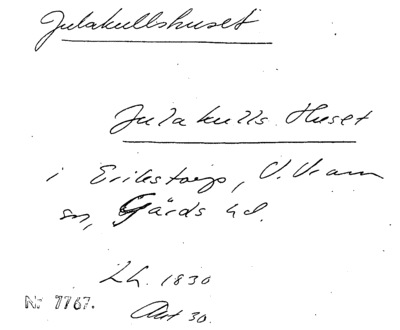 Julakullshuset
Julakulls Huset
i Erikstorp, V. Vram
sn, Gärds hd.
Lh. 1830
Akt 30.
Nr 7767.